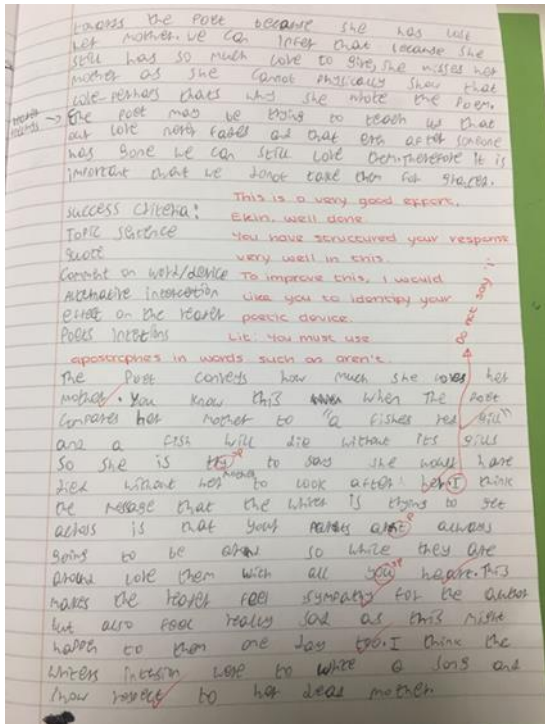 towards the Poet because she has lost
her mother. we can infer that because she
still has so much love to give, she misses her
mother as she cannot Physically show that
love - perhaps thats why she wrote the Poem.
The Poet may be trying to teach us that
our love never fades and that even after someone
has gone we can still love them. therefore it is
important that we donot take them for granted.
success criteria:
Topic Sentence
quote
Comment on word/device
Alternative
effect on the reader
Poets
This is a very good effort,
Ekin, well done.
You have structured your response
very well in this.
To improve this, I would
like you to identify your
poetic device.
Lit: You must use
apostrophes in words such as aren't.
Do not say 'i'
The Poet conveys how much she loves her
mother. You know this when The Poet
compares her mother to "a fishes red gill"
and a fish will die without its gills
So she is try to say she would have
died without her mother to look after her. I think
the message that the writer is trying to get
across is that your arnt always
going to be so while they are
around love them with all you heart. This
makes the reader feel sympathy for the author
but also feel really sad as this might
happen to them one day too. I think the
writers were to write a song and
show respect to her dead mother.